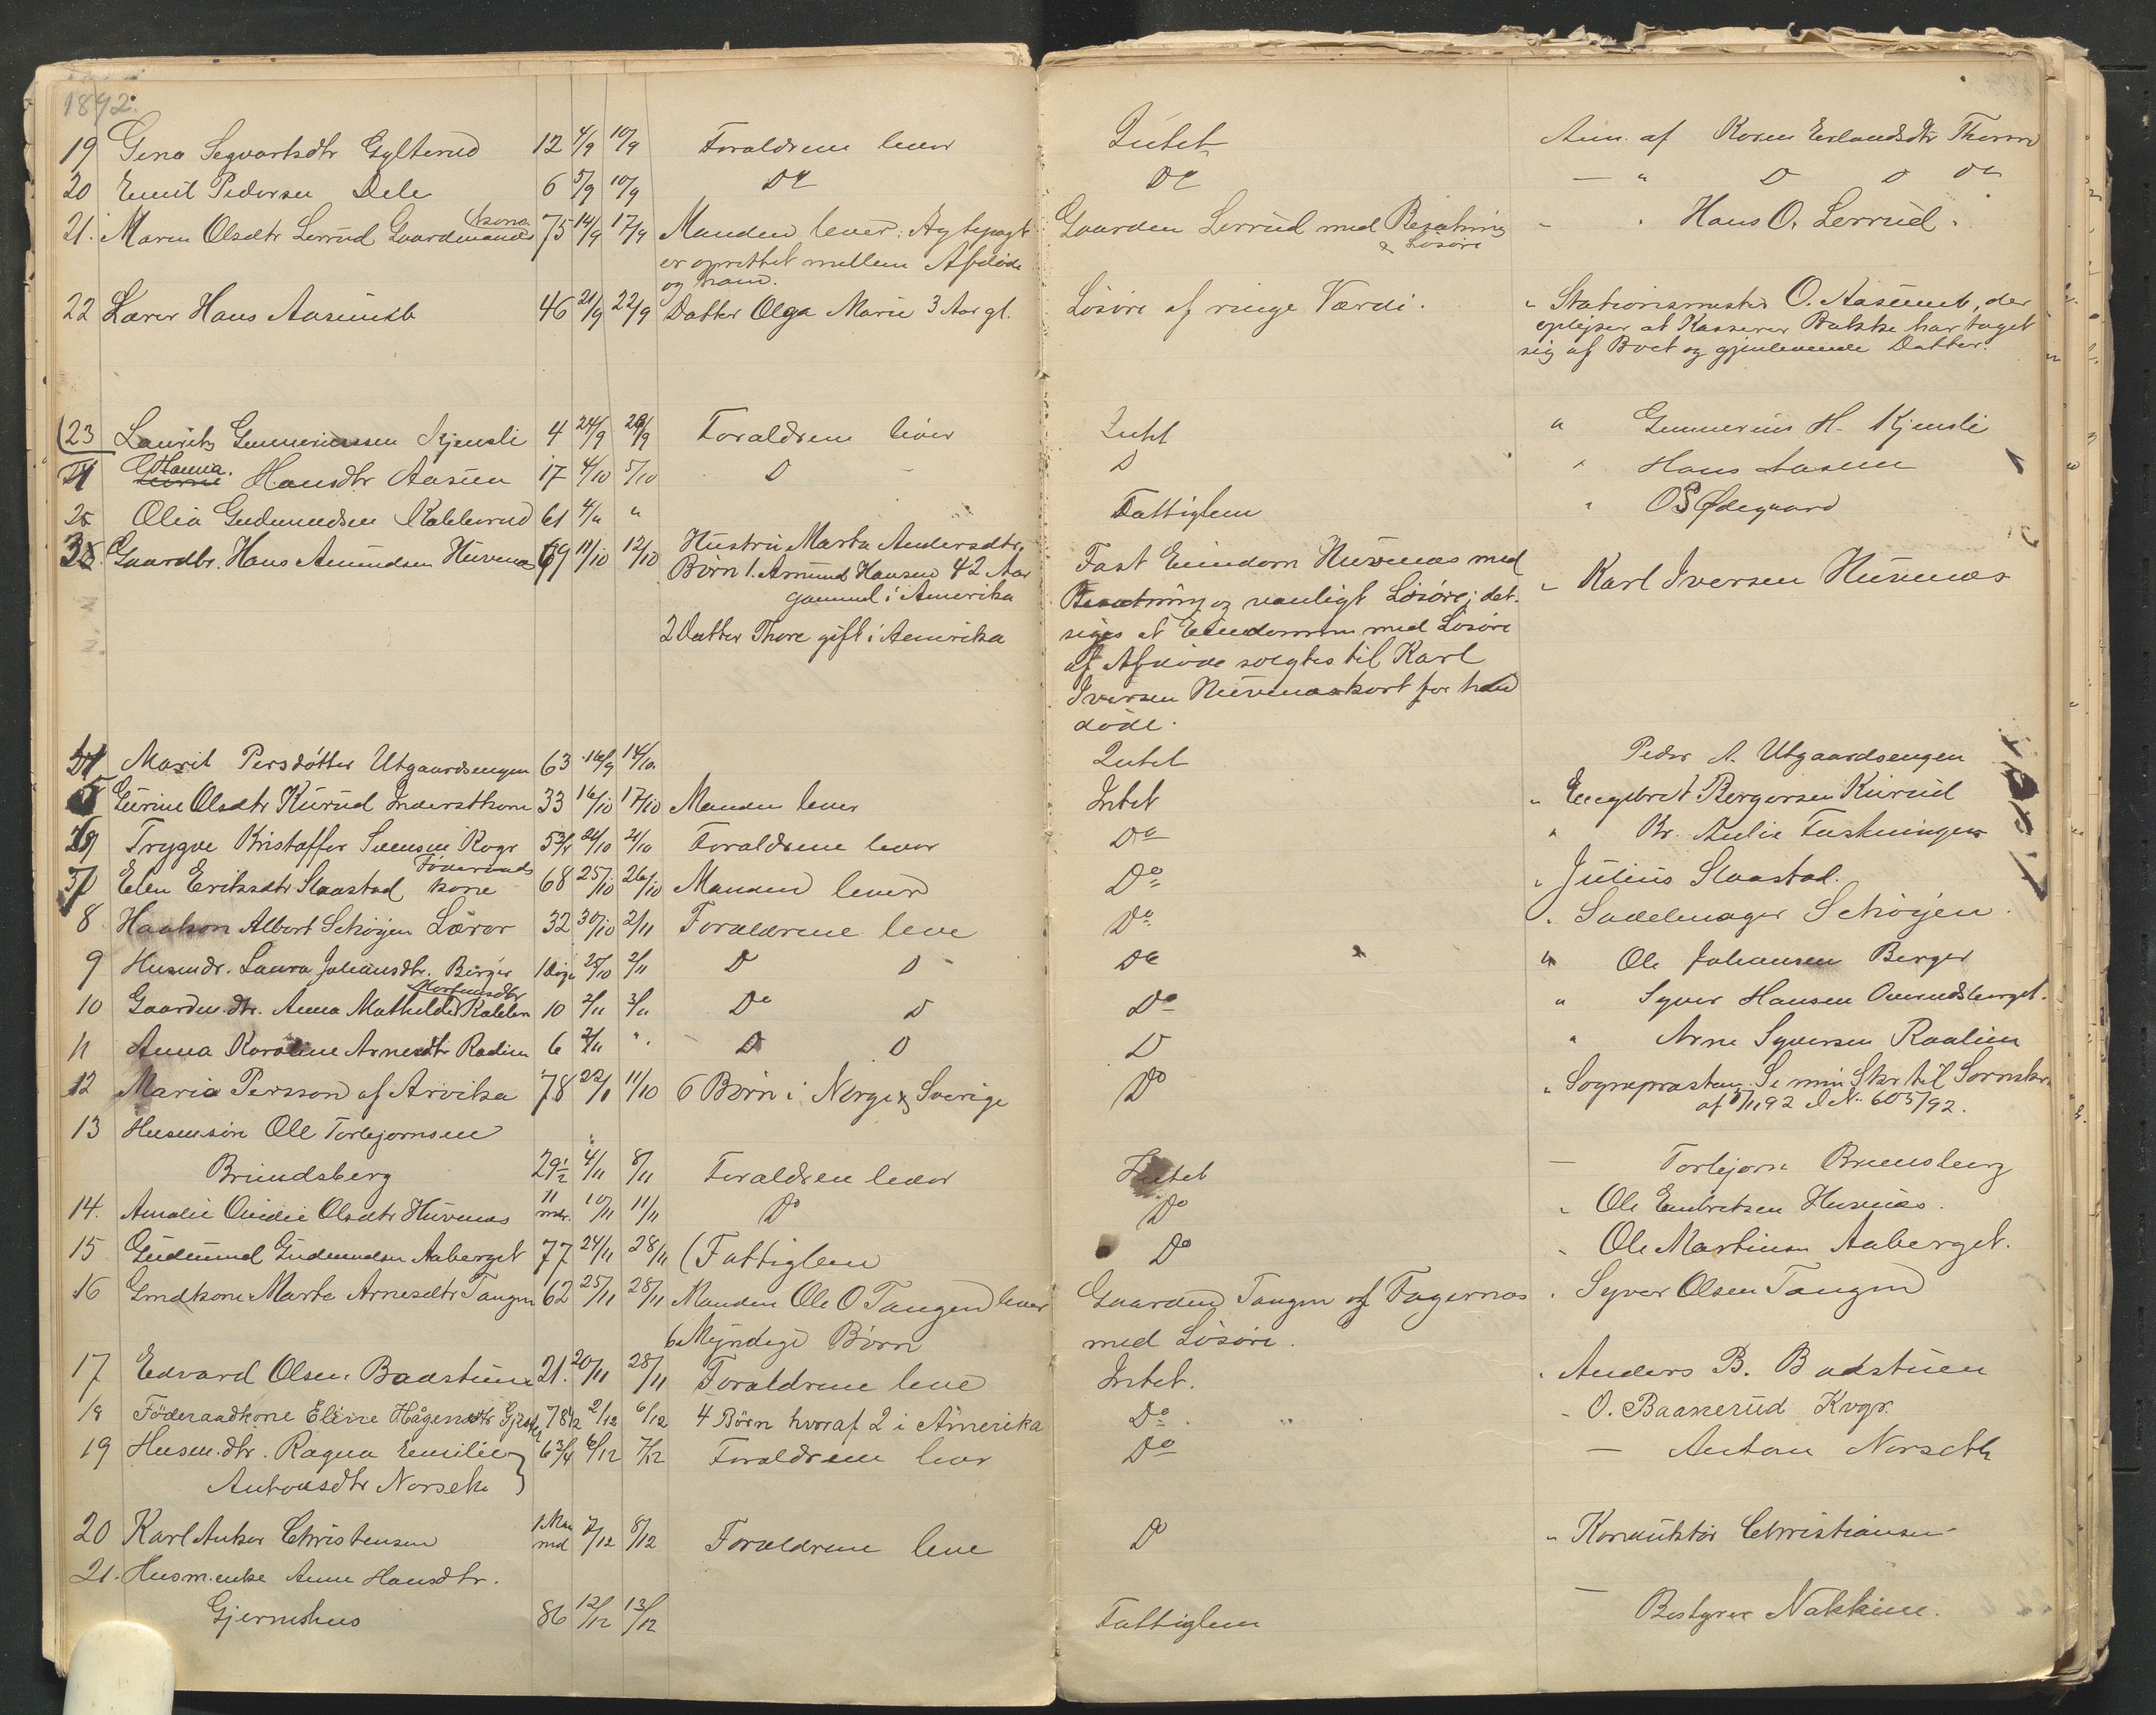 1892.
19 Gina Segvartsdtr Gylterud 12 4/9 10/9 Foraldrene lever Intet Anm. af Karen Erlandsdtr
20 Emil Pedersen Dele 6 5/9 10/9 Do Do — " D D Do
kone
21. Maren Olsdtr Lerrud Gaardmands 75 14/9 17/9 Manden lever: Ægtepagt Gaarden Lerrud med Besætning - " Hans O. Lerrud.
er oprettet mellem Afdøde & Løsøre
og ham.
22 Lærer Hans Aasunds 46 21/9 22/9 Datter Olga Marie 3 Aar gl. Løsøre af ringe Værdi. " Stationsmester O. Aasund, der
oplyser at Kasserer har taget
sig af Boet og gjenlevende Datter.
23 Laurits Gunneriussen Kjensli 4 24/9 26/9 Foraldrene lever Intet " Gunnerius H. Kjensli
Hanna.
Hansdtr Aasen 17 4/10 5/10 D D " Hans Aasen
25 Olia Gudmundsen Kabberud 61 4/11 " Fattiglem " O S Ødegaard
Gaardbr. Hans Amundsen Huvenæs 69 11/10 12/10 Hustru Marta Andersdtr. Fast Eiendom Huvenæs med - Karl Iversen Huvenæs
Børn 1. Amund Hansen 42 Aar Besætning og vanligt Løsøre; det
gammel i Amerika siges at Eiendommen med Løsøre
2 Datter Thore gift i Amerika af Afdøde solgtes til Karl
Iversen Huvenæs kort før han
døde.
Marit Persdótter Utgaardsengen 63 16/9 14/10. Intet Peder A. Utgaardsengen
5 Gurine Olsdtr Kurud Inderstkone 33 16/10 17/10 Manden lever Intet " Engebret Bergersen Kurud
Trygve Kristoffer Svensen Rogr 5 3/4 21/10 21/10 Foraldrene lever Do " Kr. Aulie
Føderaads
Elen Eriksdtr Slaastad kone 68 25/10 26/10 Manden lever Do " Julius Slaastad.
8 Haakon Albert Schøyen Lærer 32 30/10 2/11 Foraldrene leve Do " Sadelmager Schøyen.
9 Husmdr. Laura Johansdtr. Berger 1 Dage 25/10 2/11 D D Do " Ole Johansen Berger
Mortensdtr
10 Gaardm.dtr. Anna Mathilde Kabben 10 2/11 3/11 Do D Do " Syver Hansen Overudsberget.
11 Anna Karoline Arnesdtr Raalien 6 2/11 " D D D " Arne Syversen Raalien
12 Maria Persson af Arvika 78 22/8 11/10 6 Børn i Norge & Sverige Do " Sognepræsten. Se min Skr til Sornskr.
af 5/11 92 N: 605/92.
13 Husm.søn Ole Torbjørnsen
Brundsberg 29 1/2 4/11 8/11 Foraldren lever Intet — Torbjørn Brunsberg
14. Amalie Ovidie Olsdtr Huvenæs 11 mdr. 10/11 11/11 Do Do " Ole Embretsen Huvenæs.
15 Gudmund Gudmundsen Aaberget 77 24/11 28/11 (Fattiglem Do " Ole Martinsen Aaberget.
16 Gmdkone Marte Arnesdtr Tangen 62 25/11 28/11 Manden Ole O Tangen lever Gaarden Tangen og Fagernæs " Syver Olsen Tangen
6 Myndige Børn med Løsøre.
17 Edvard Olsen Baastuen 21. 20/11 28/11 Foraldrene leve Intet. " Anders B. Badstuen
18 Föderaadkone Eline Hågensdtr 78 1/2 2/12 6/12 4 Børn hvoraf 2 i Amerika Do - O. Baanerud Kvgr.
19 Husm.dtr. Ragna Emilie 6 3/4 6/12 7/12 Foraldrene lever Do — Anton Norseth
Antonsdtr Norseth
20 Karl Anker Christensen 1 Maaned 7/12 8/12 Foraldrene leve Do " Konduktør Christiansen
21. Husm.enke Anne Hansdtr.
Gjermshus 86 12/12 13/12 Fattiglem — Bestyrer Nakkim.